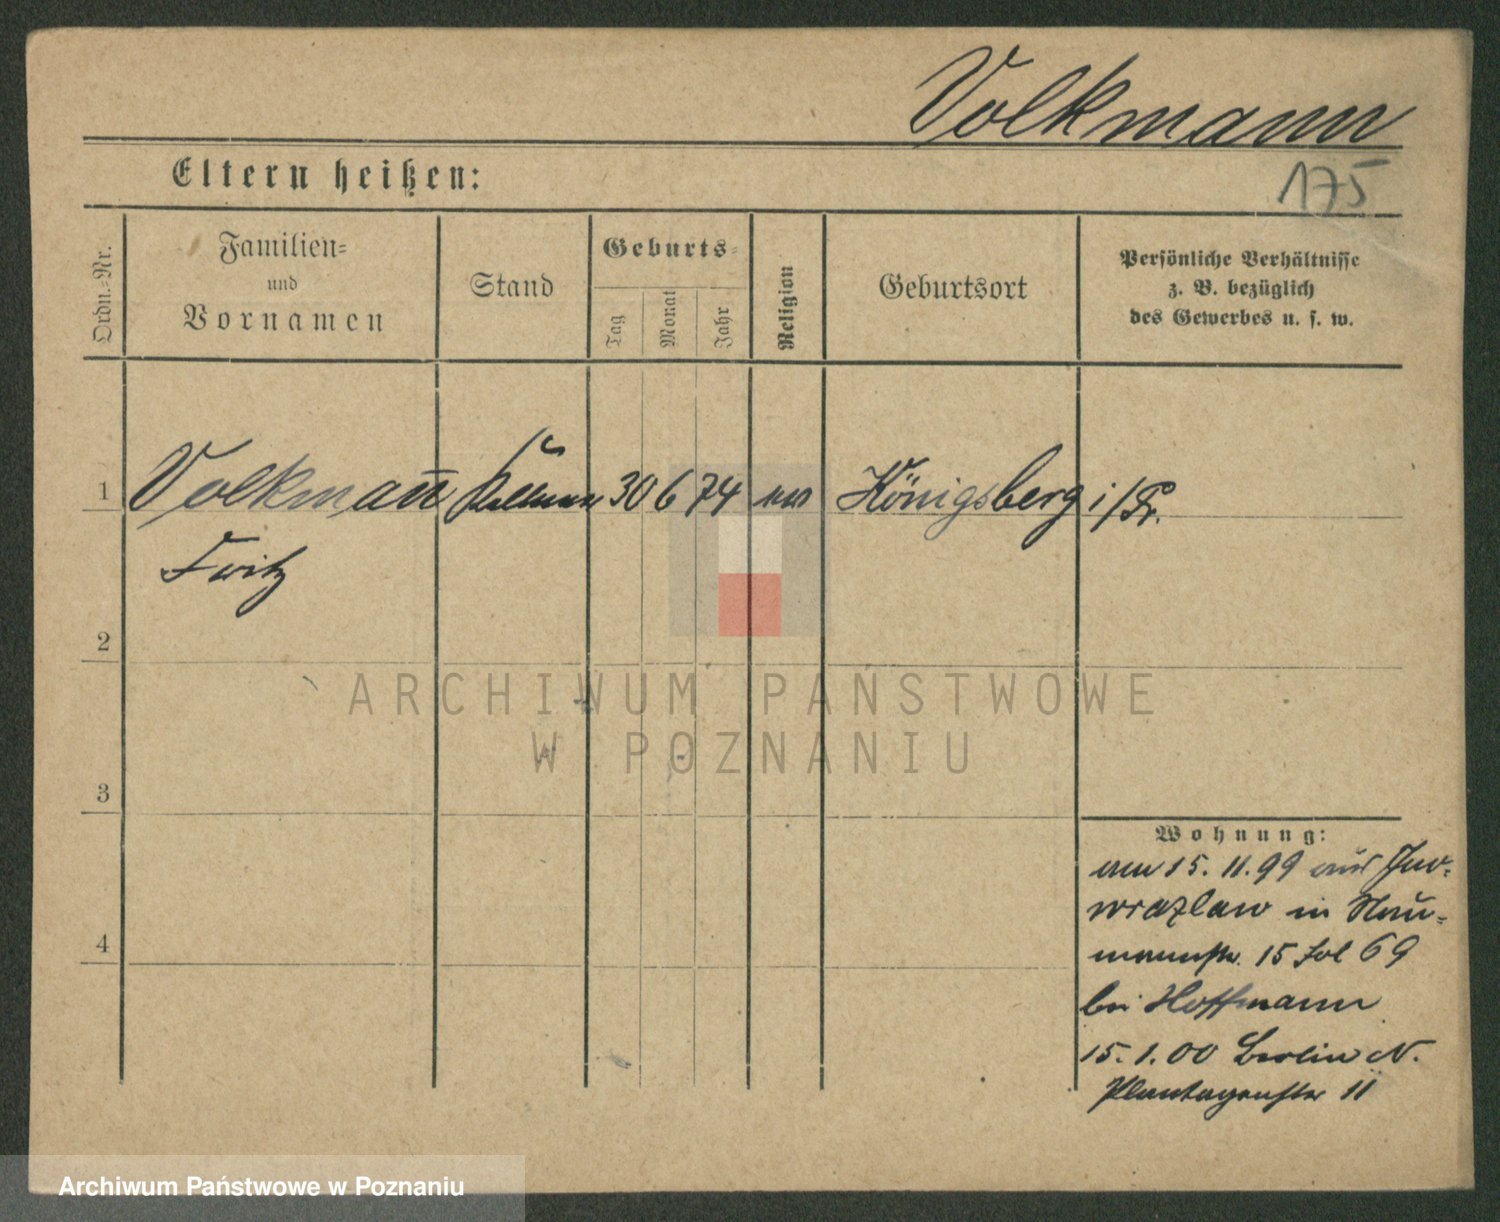 Volkmann
175
Eltern heißen:
Ordn.-Nr.
Familien-
und
Vornamen
Stand
Geburts-
Tag
Monat
Jahr
Religion
Geburtsort
Persönliche Verhältnisse
z. B. bezüglich
des Gewerbes u. s. w.
1
Volkmañ
Kellner
30
6
74
ev
Königsberg i/Pr.
Fritz
2
3
4
Wohnung:
am 15. 11. 99 aus Ino-
wrazlaw in Nau-
mannstr. 15 Sol 69
bei Hoffmann
15. 1. 00 Berlin N.
Plantagenstr 11
ARCHIWUM PAŃSTWOWE
W POZNANIU
Archiwum Państwowe w Poznaniu